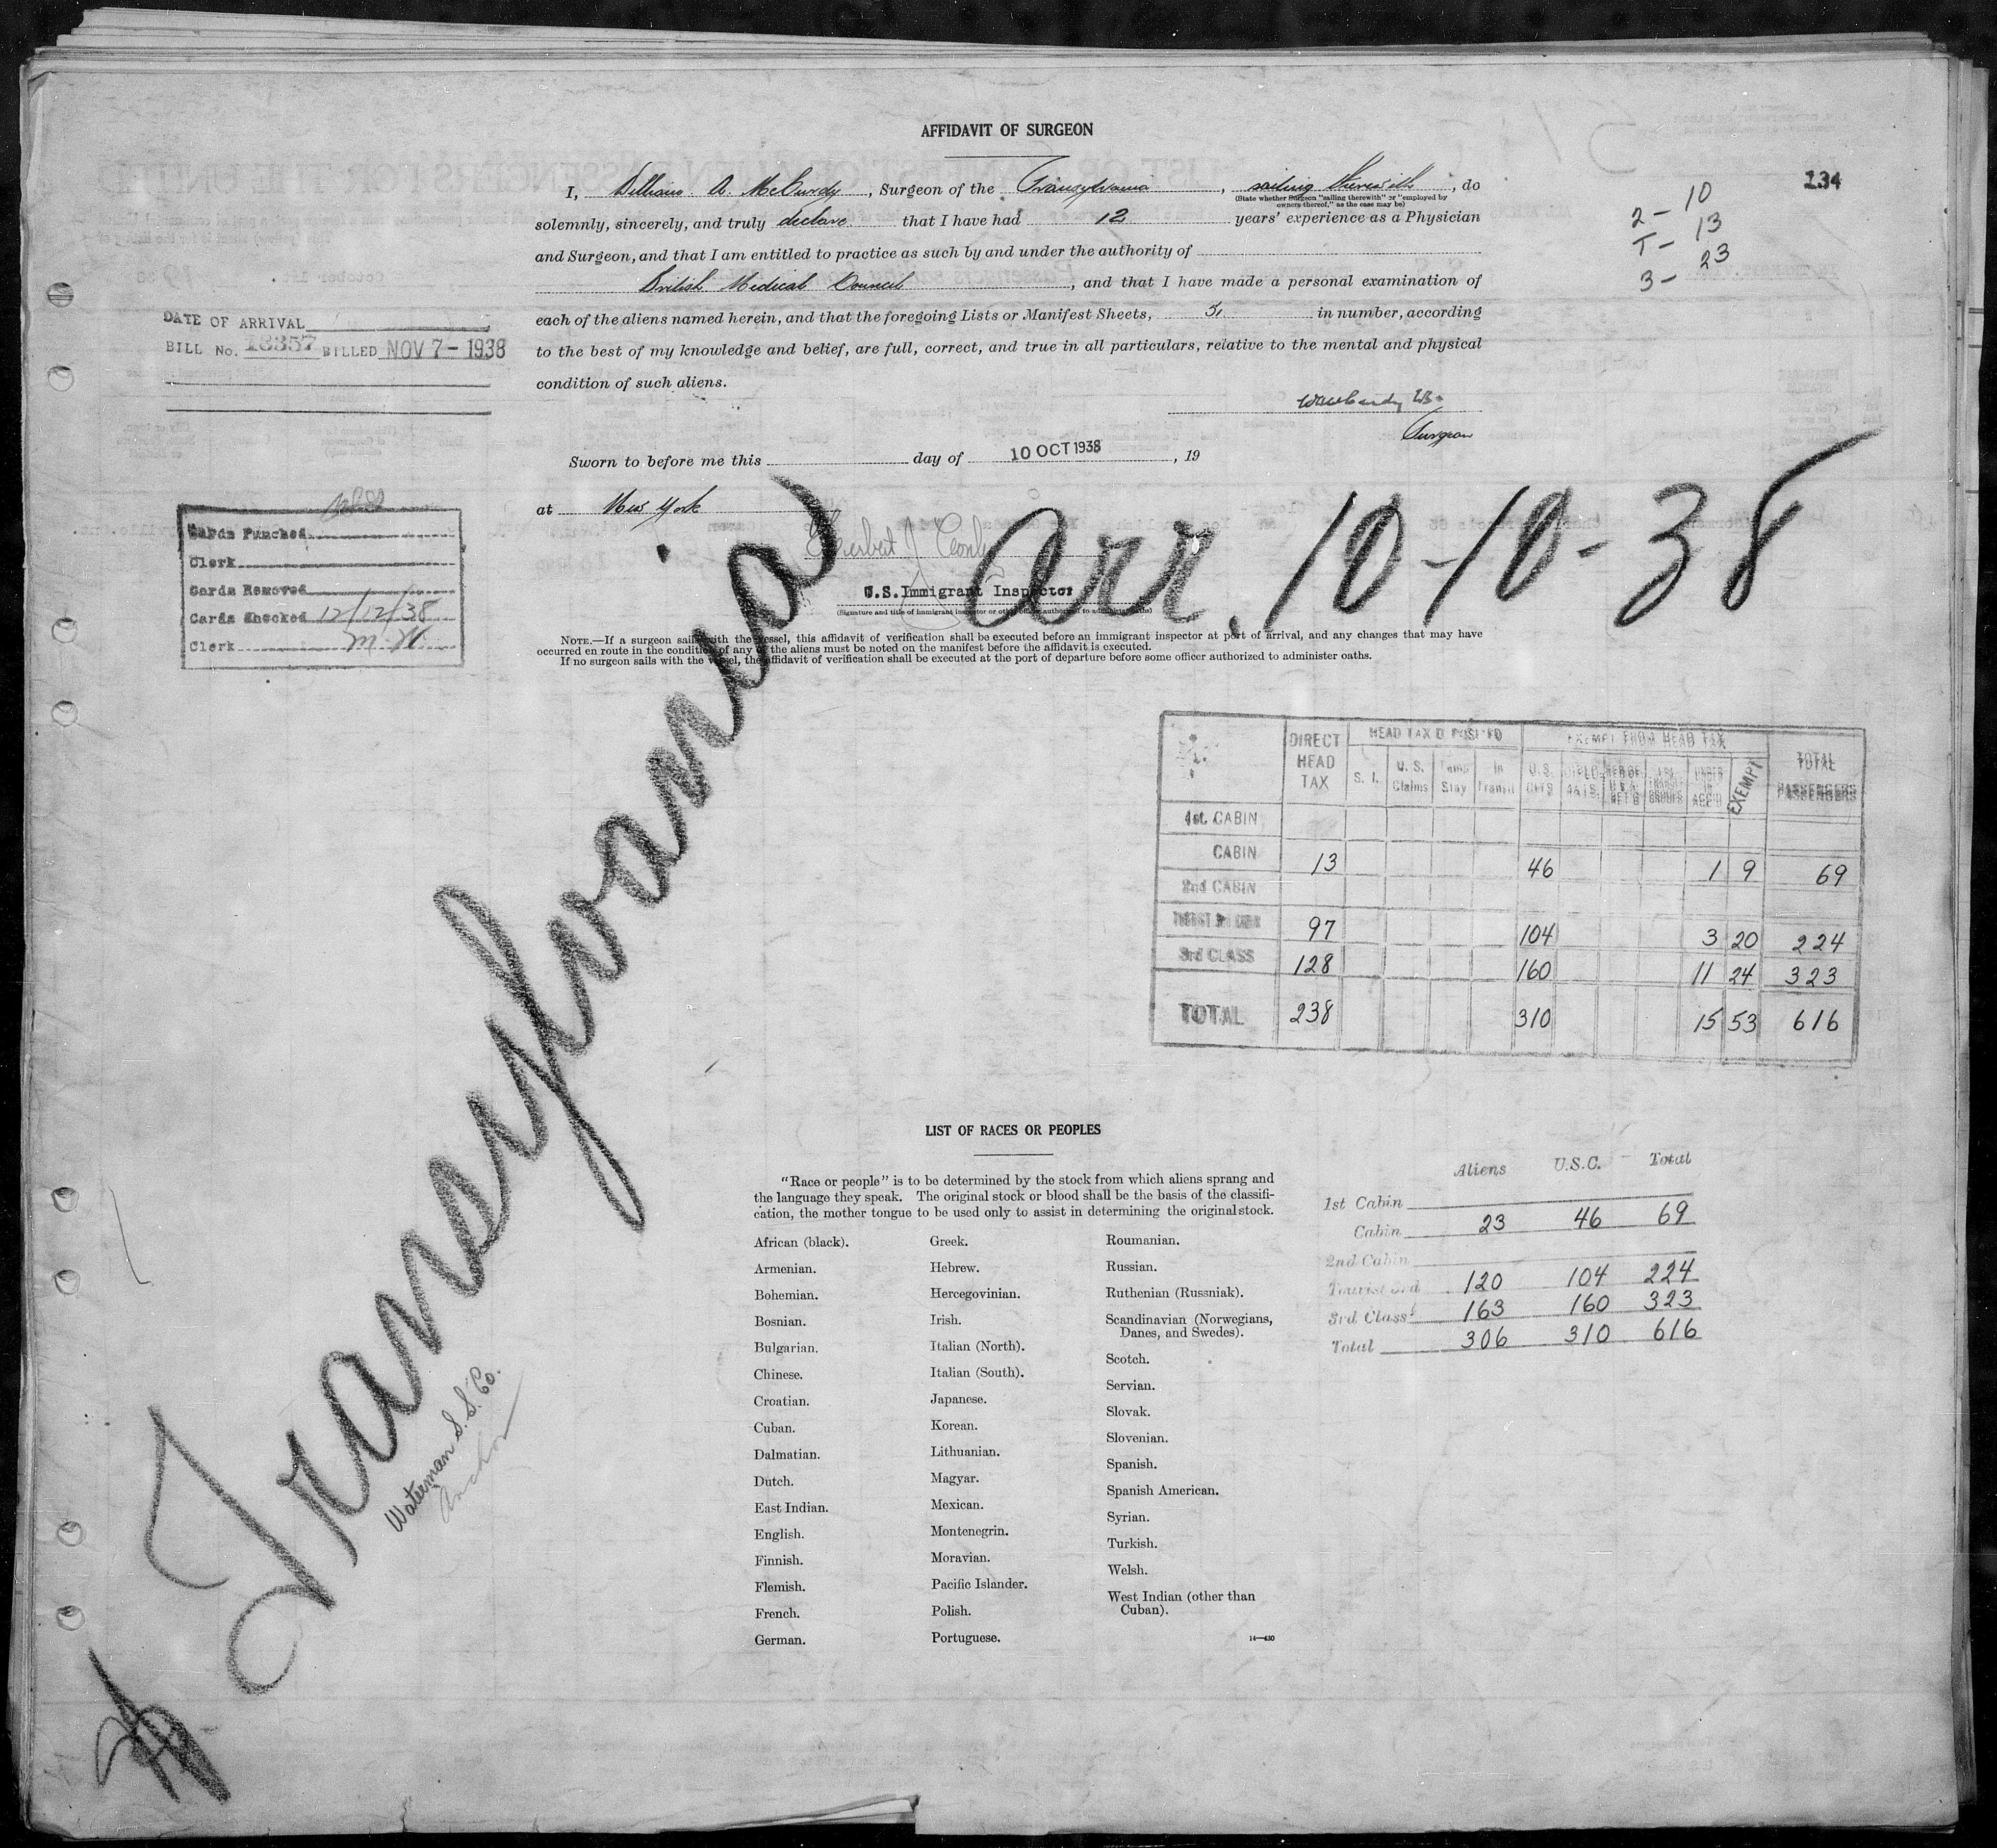 AFFIDAVIT OF SURGEON
I, William A. McCurdy, Surgeon of the Transylvania, sailing therewith, do
(State whether Surgeon "sailing therewith" or "employed by owners thereof," as the case may be)
solemnly, sincerely, and truly declare that I have had 12 years' experience as a Physician
and Surgeon, and that I am entitled to practice as such by and under the authority of
British Medical Council, and that I have made a personal examination of
each of the aliens named herein, and that the foregoing Lists or Manifest Sheets, in number, according
to the best of my knowledge and belief, are full, correct, and true in all particulars, relative to the mental and physical
condition of such aliens.
Surgeon
Sworn to before me this day of 10 OCT 1938, 19
at New York
Herbert J.
U.S. Immigrant Inspector
(Signature and title of immigrant inspector or other officer authorized to administer oaths)
NOTE.—If a surgeon sails with the vessel, this affidavit of verification shall be executed before an immigrant inspector at port of arrival, and any changes that may have
occurred en route in the condition of any of the aliens must be noted on the manifest before the affidavit is executed.
If no surgeon sails with the vessel, the affidavit of verification shall be executed at the port of departure before some officer authorized to administer oaths.
134
2 - 10
T - 13
3 - 23
DATE OF ARRIVAL
BILL No. 18357 BILLED NOV 7 - 1938
Cards Punched
Clerk
Cards Removed
Cards Checked 12/12/38
Clerk
Arr. 10-10-38
Transylvania
Waterman S.S. Co.
Anchor
DIRECT HEAD TAX HEAD TAX DEPOSITED EXEMPT FROM HEAD TAX TOTAL PASSENGERS
S. I. U. S. Claims Temp Stay In Transit U.S. CITS DIPLOMATS UNDER IN ACC'D EXEMPT
1st. CABIN
CABIN 13 46 1 9 69
2nd CABIN
TOURIST 3rd CABIN 97 104 3 20 224
3rd CLASS 128 160 11 24 323
TOTAL 238 310 15 53 616
LIST OF RACES OR PEOPLES
"Race or people" is to be determined by the stock from which aliens sprang and
the language they speak. The original stock or blood shall be the basis of the classifi-
cation, the mother tongue to be used only to assist in determining the original stock.
African (black).
Armenian.
Bohemian.
Bosnian.
Bulgarian.
Chinese.
Croatian.
Cuban.
Dalmatian.
Dutch.
East Indian.
English.
Finnish.
Flemish.
French.
German.
Greek.
Hebrew.
Hercegovinian.
Irish.
Italian (North).
Italian (South).
Japanese.
Korean.
Lithuanian.
Magyar.
Mexican.
Montenegrin.
Moravian.
Pacific Islander.
Polish.
Portuguese.
Roumanian.
Russian.
Ruthenian (Russniak).
Scandinavian (Norwegians,
Danes, and Swedes).
Scotch.
Servian.
Slovak.
Slovenian.
Spanish.
Spanish American.
Syrian.
Turkish.
Welsh.
West Indian (other than
Cuban).
14—430
Aliens U.S.C. Total
1st Cabin
Cabin 23 46 69
2nd Cabin
Tourist 3rd 120 104 224
3rd Class 163 160 323
Total 306 310 616